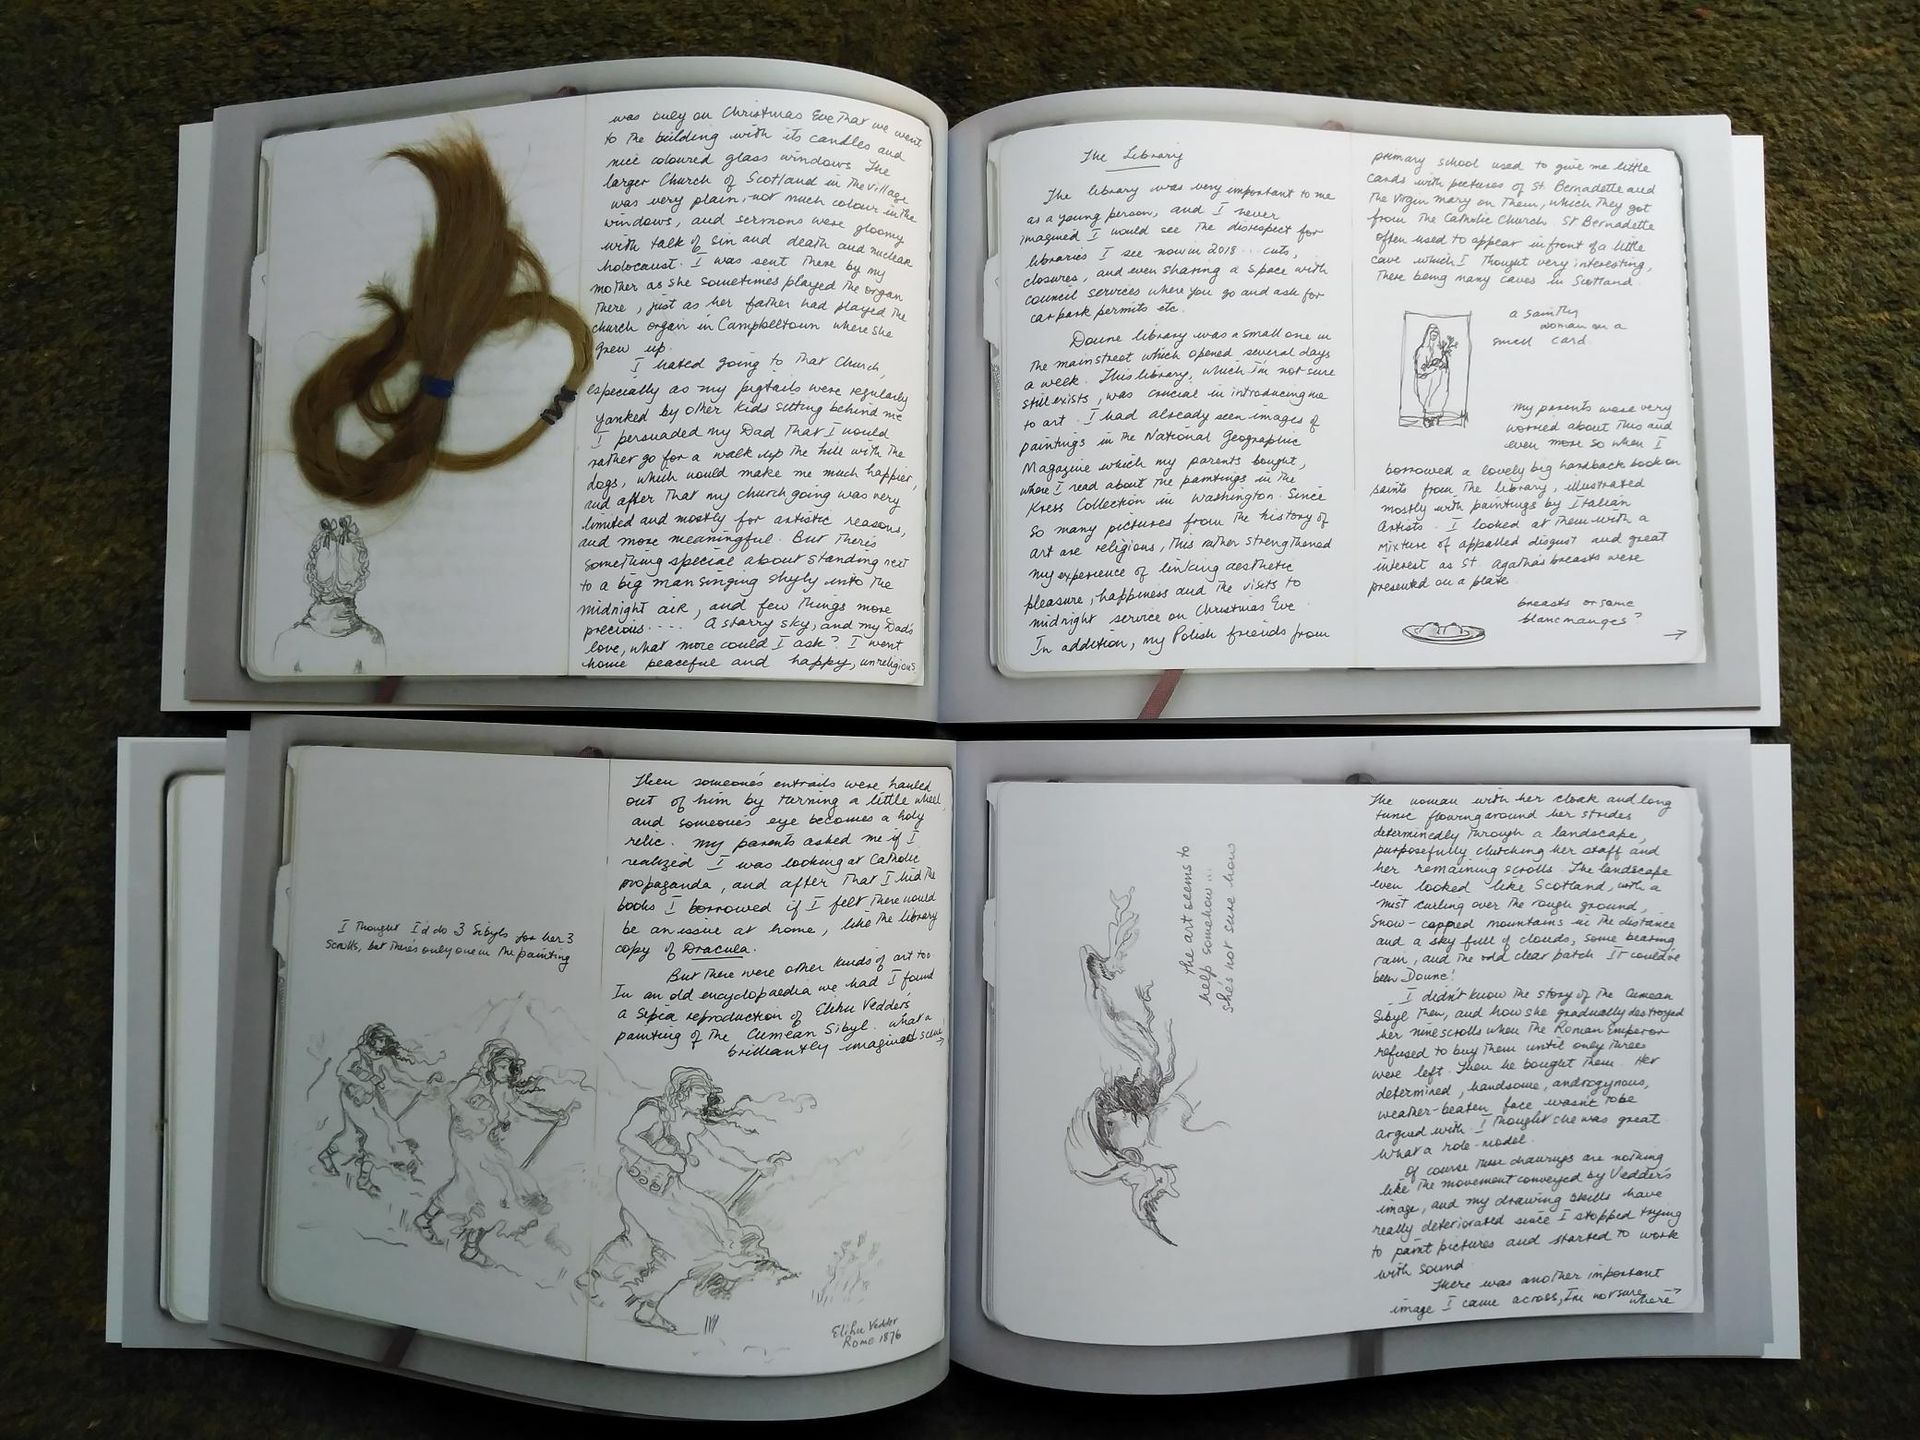 was only on Christmas Eve that we went
to the building with its candles and
nice coloured glass windows. The
larger Church of Scotland in the village
was very plain, not much colour in the
windows, and sermons were gloomy
with talk of sin and death and nuclear
holocaust. I was sent there by my
mother as she sometimes played the organ
there, just as her father had played the
church organ in Campbeltown where she
grew up.
I hated going to that Church,
especially as my pigtails were regularly
yanked by other kids sitting behind me
I persuaded my Dad that I would
rather go for a walk up the hill with the
dogs, which would make me much happier,
and after that my church going was very
limited and mostly for artistic reasons,
and more meaningful. But there's
something special about standing next
to a big man singing shyly into the
midnight air, and few things more
precious.... A starry sky, and my Dad's
love, what more could I ask? I went
home peaceful and happy, unreligious.
The Library
The library was very important to me
as a young person, and I never
imagined I would see the disrespect for
libraries I see now in 2018... cuts,
closures, and even sharing a space with
council services where you go and ask for
car park permits etc.
Doune library was a small one in
the main street which opened several days
a week. This library, which I'm not sure
still exists, was crucial in introducing me
to art. I had already seen images of
paintings in the National Geographic
Magazine which my parents bought,
where I read about the paintings in the
Kress Collection in Washington. Since
so many pictures from the history of
art are religious, this rather strengthened
my experience of linking aesthetic
pleasure, happiness and the visits to
midnight service on Christmas Eve.
In addition, my Polish friends from
primary school used to give me little
cards with pictures of St Bernadette and
the Virgin Mary on them, which they got
from the Catholic Church. St Bernadette
often used to appear in front of a little
cave which I thought very interesting,
there being many caves in Scotland.
a saintly
woman on a
small card.
my parents were very
worried about this and
even more so when I
borrowed a lovely big hardback book on
saints from the library, illustrated
mostly with paintings by Italian
artists. I looked at them with a
mixture of appalled disgust and great
interest as St. Agatha's breasts were
presented on a plate.
breasts or some
blancmanges?
→
I thought I'd do 3 Sibyls for her 3
scrolls, but there's only one in the painting
Then someone's entrails were hauled
out of him by turning a little wheel,
and someone's eye becomes a holy
relic. My parents asked me if I
realized I was looking at Catholic
propaganda, and after that I hid the
books I borrowed if I felt there would
be an issue at home, like the library
copy of Dracula.
But there were other kinds of art too.
In an old encyclopaedia we had I found
a sepia reproduction of Elihu Vedder's
painting of the Cumean Sibyl. What a
brilliantly imagined scene →
Elihu Vedder
Rome 1876
the art seems to
help somehow...
she's not sure how
The woman with her cloak and long
tunic flowing around her strides
determinedly through a landscape,
purposefully clutching her staff and
her remaining scrolls. The landscape
even looked like Scotland, with a
mist curling over the rough ground,
snow-capped mountains in the distance
and a sky full of clouds, some bearing
rain, and the odd clear patch. It could've
been Doune!
I didn't know the story of the Cumean
Sibyl then, and how she gradually destroyed
her nine scrolls when the Roman Emperor
refused to buy them until only three
were left. Then he bought them. Her
determined, handsome, androgynous,
weather-beaten face wasn't to be
argued with. I thought she was great.
What a role-model.
Of course these drawings are nothing
like the movement conveyed by Vedder's
image, and my drawing skills have
really deteriorated since I stopped trying
to paint pictures and started to work
with sound.
There was another important
image I came across, I'm not sure where →